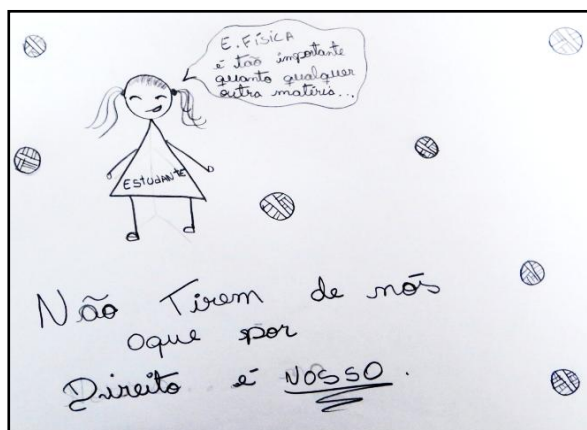 E. FÍSICA
é tão importante
quanto qualquer
outra matéria...
ESTUDANTE
Não Tirem de nós
oque por
Direito é NOSSO.